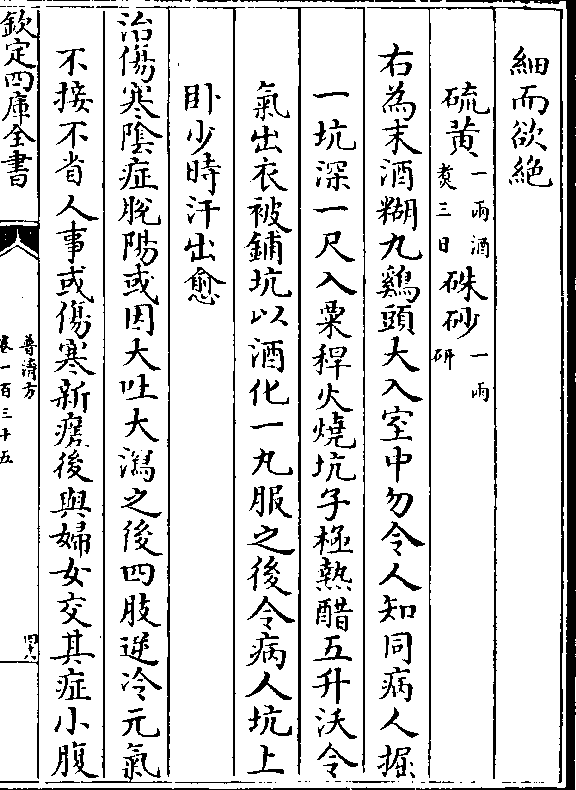 細而欲絶
硫黄一兩酒煑三日硃砂一兩研
右為末酒糊丸鷄頭大入室中勿令人知同病人掘
一坑深一尺入粟稈火燒坑子極熱醋五升沃令
氣出衣被鋪坑以酒化一丸服之後令病人坑上
卧少時汗出愈
治傷寒陰症脫陽或因大吐大瀉之後四肢逆冷元氣
不接不省人事或傷寒新瘥後與婦女交其症小腹
欽定四庫全書
普濟方
卷一百三十五
四六